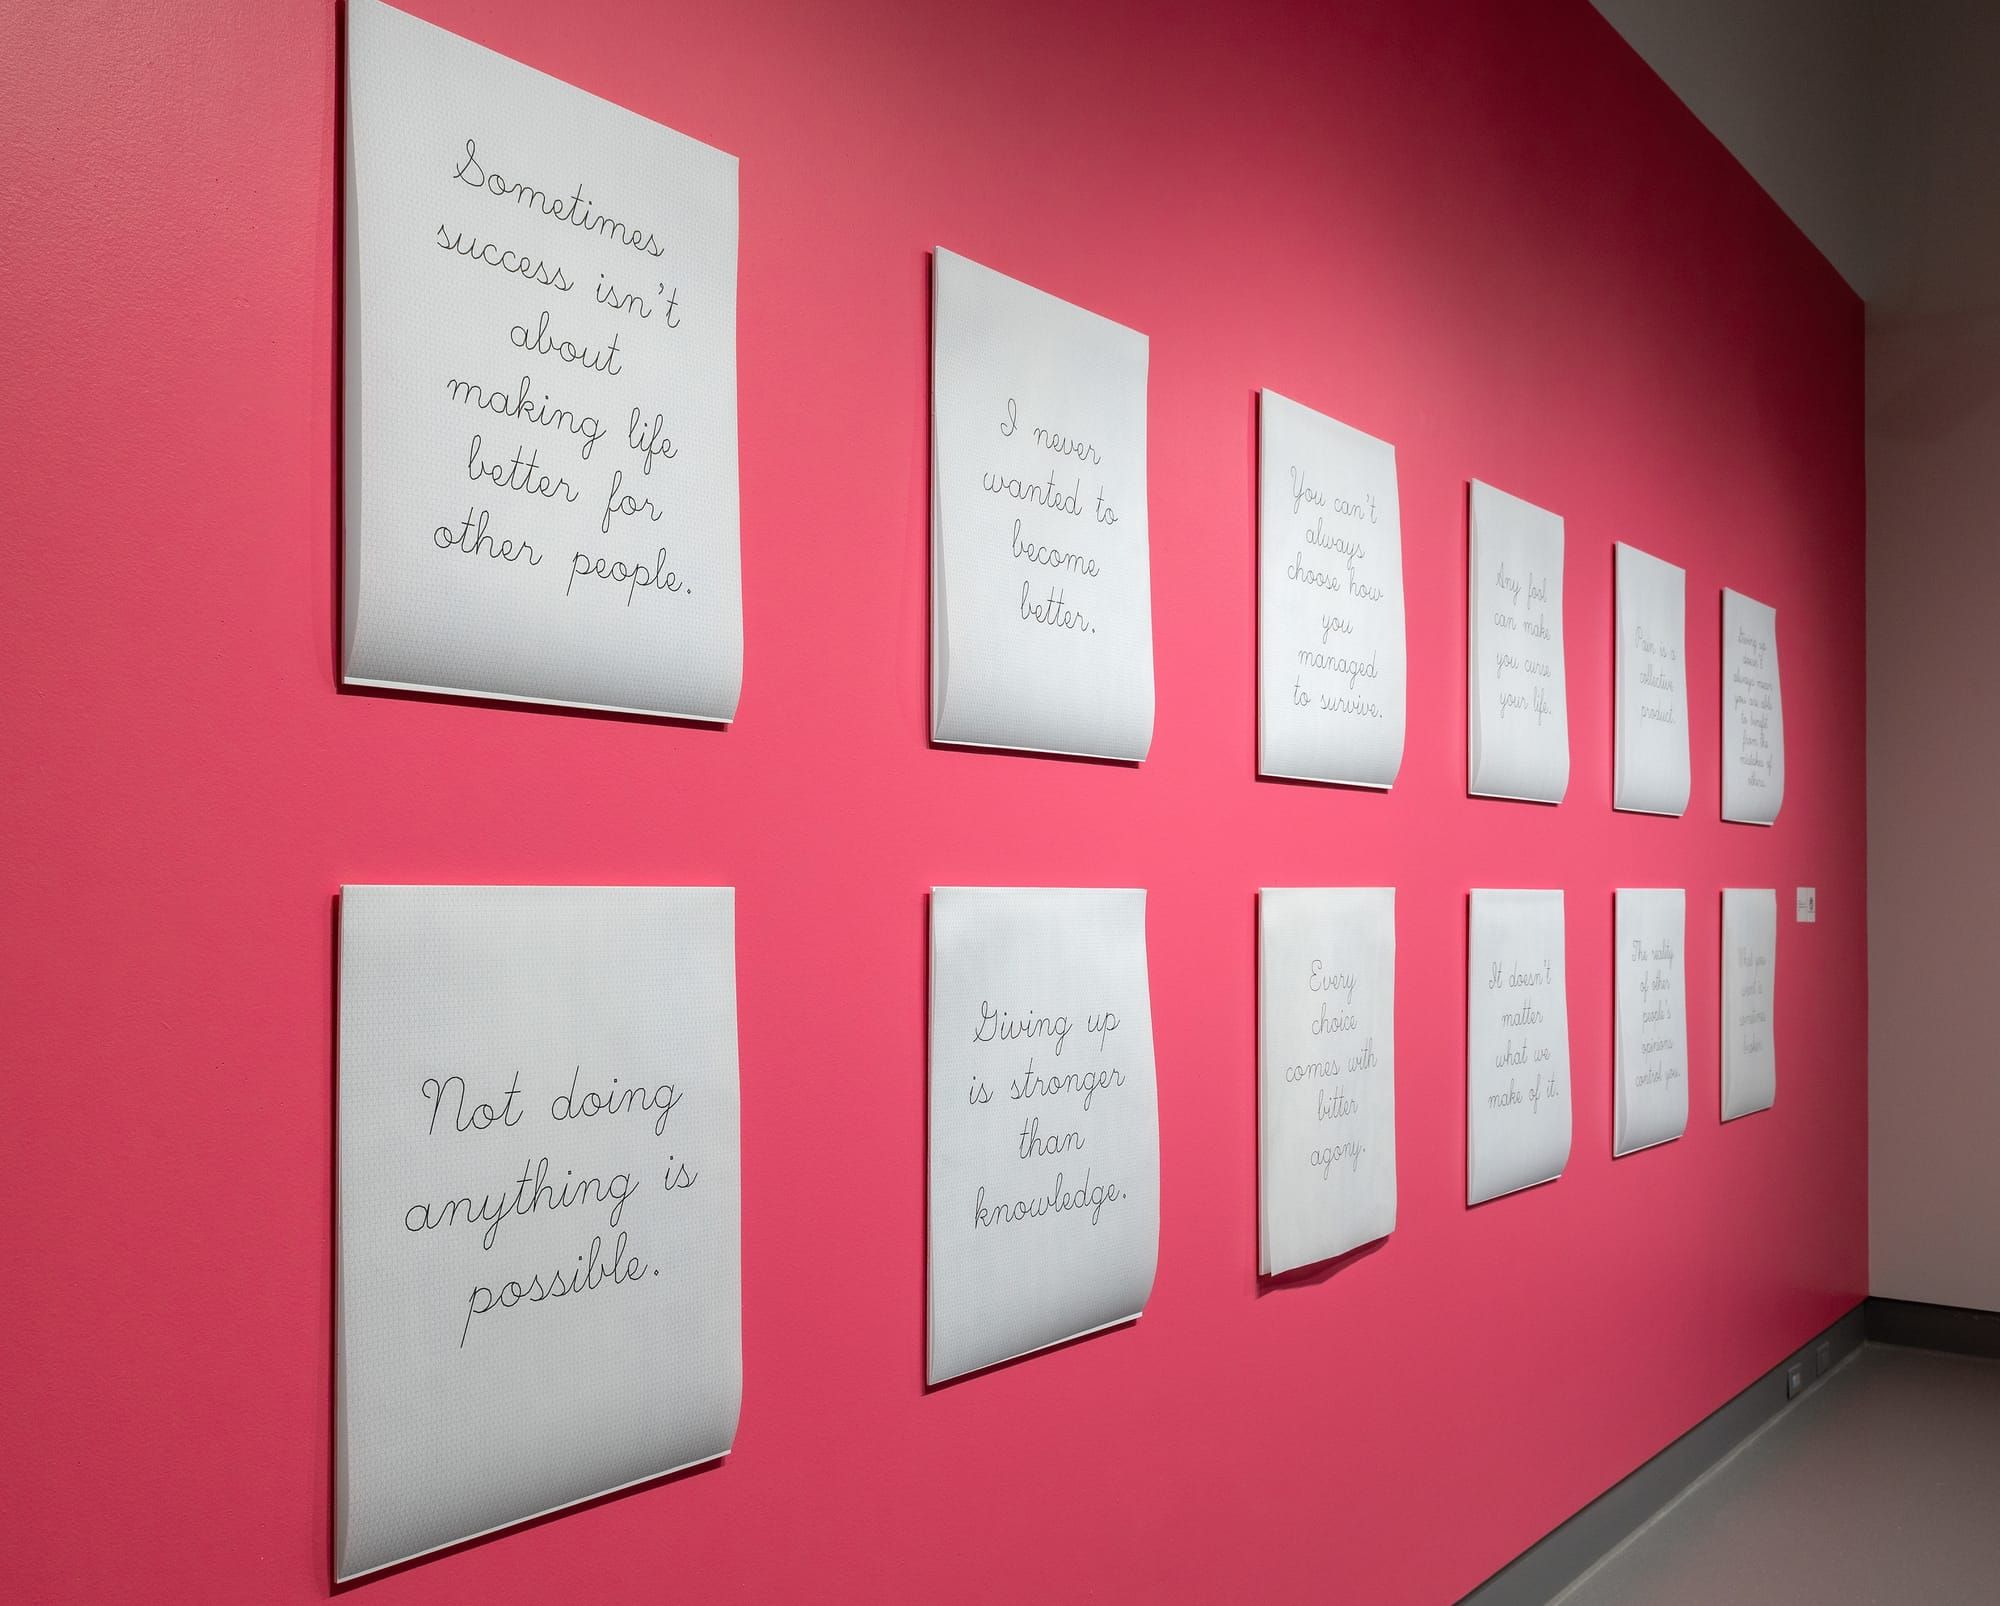 Sometimes
success isn't
about
making life
better for
other people.
I never
wanted to
become
better.
You can't
always
choose how
you
managed
to survive.
Any fool
can make
you curse
your life.
Pain is a
collective
product.
Giving up
doesn't
always mean
you are able
to benefit
from the
mistakes of
others.
Not doing
anything is
possible.
Giving up
is stronger
than
knowledge.
Every
choice
comes with
bitter
agony.
It doesn't
matter
what we
make of it.
The reality
of other
people's
opinions
control you.
What you
want is
sometimes
broken.